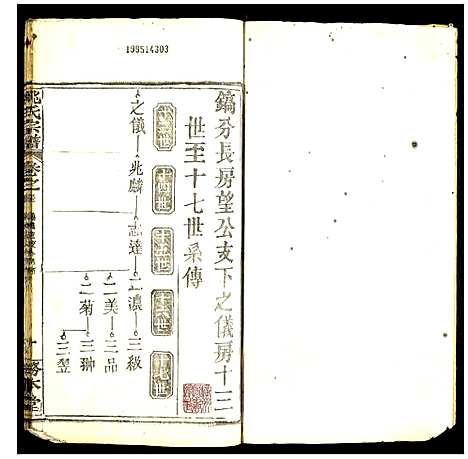 199514303
鎬分長房望公支下之儀房十三
世至十七世系傳
十三世
十四世
十五世
十六世
十七世
之儀
兆麟
志達
二濃
三級
二美
三品
二菊
三翀
三翌
姚氏宗譜
卷之
務本堂